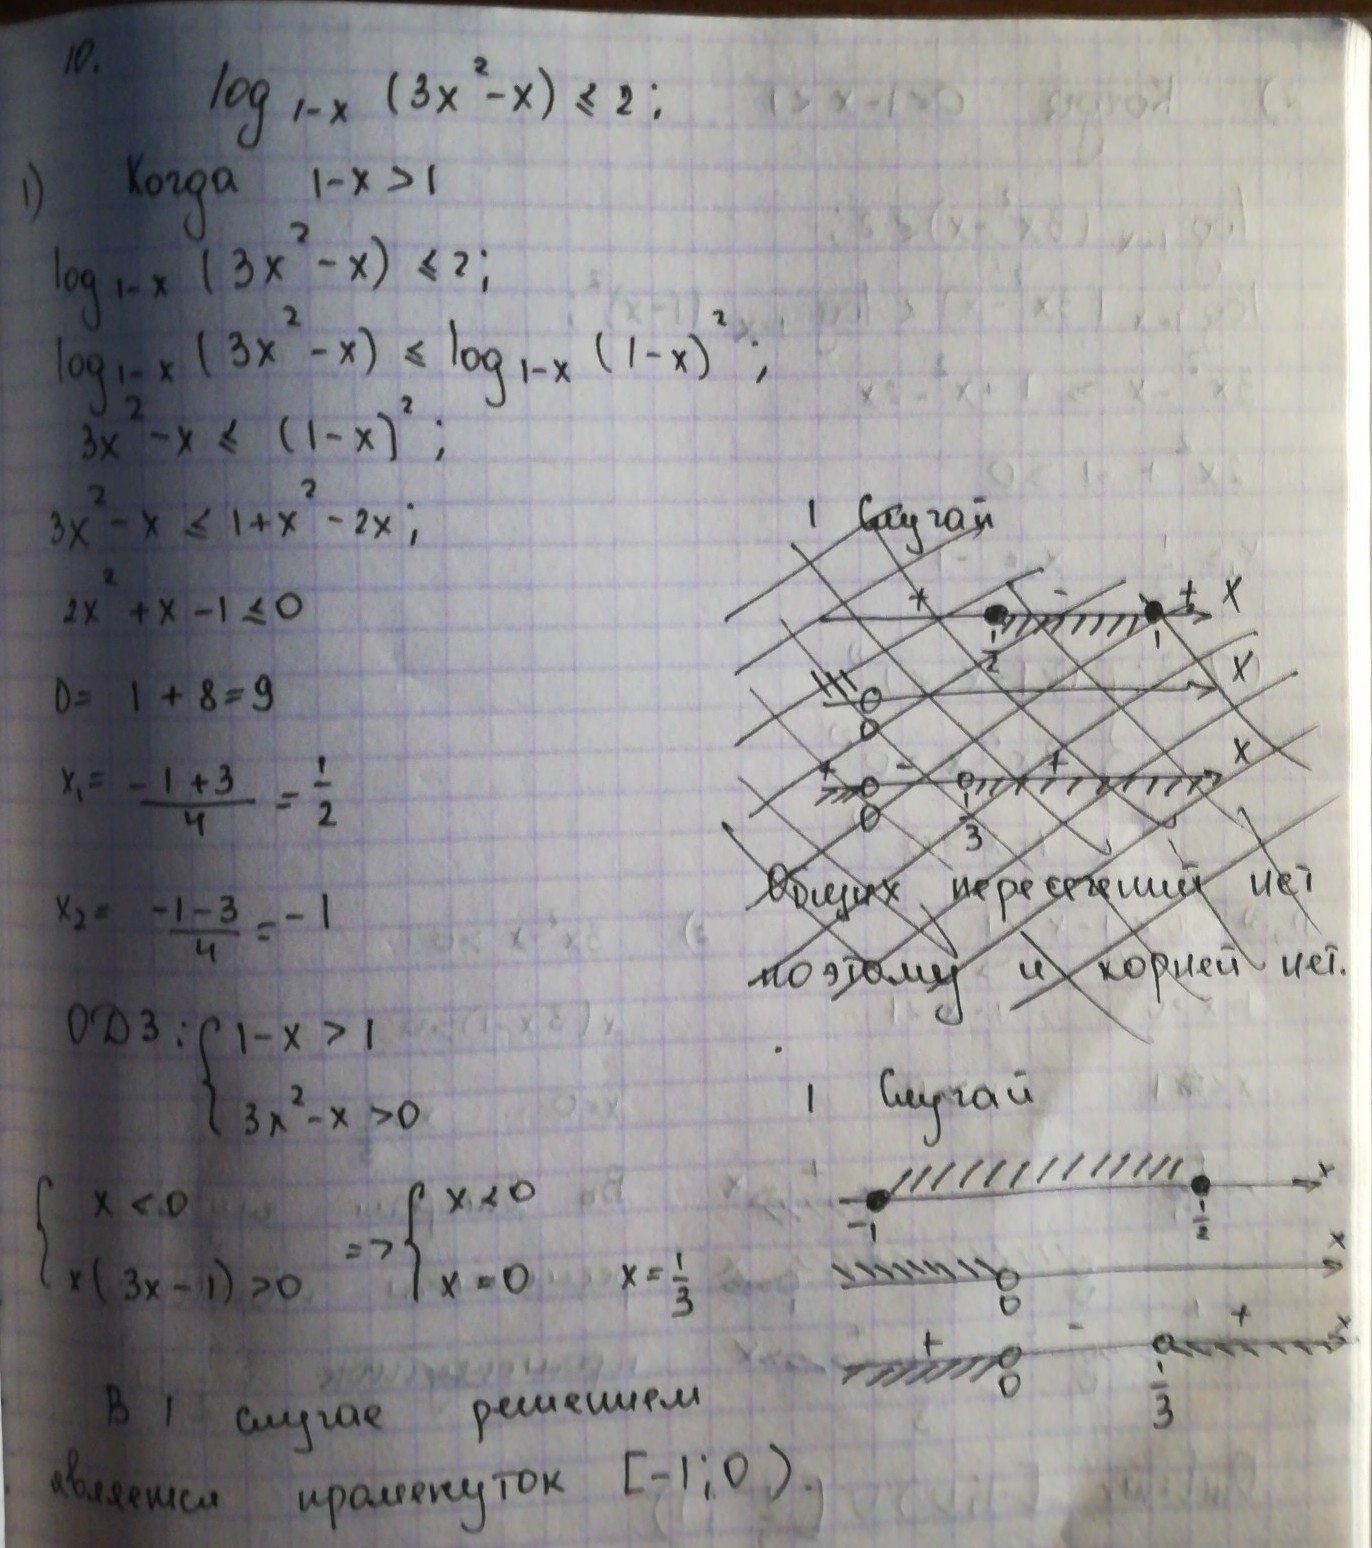 10.
log₁₋ₓ (3x² - x) ≤ 2;
1) Когда 1-x > 1
log₁₋ₓ (3x² - x) ≤ 2;
log₁₋ₓ (3x² - x) ≤ log₁₋ₓ (1-x)²;
3x² - x ≤ (1-x)²;
3x² - x ≤ 1 + x² - 2x;
2x² + x - 1 ≤ 0
D = 1 + 8 = 9
x₁ = (-1+3)/4 = 1/2
x₂ = (-1-3)/4 = -1
ОДЗ: { 1-x > 1
3x² - x > 0
{ x < 0
x(3x-1) > 0
=> { x < 0
x = 0 x = 1/3
В 1 случае решением
является промежуток [-1; 0).
1 Случай
+ - + x
1/2 1
x
0
+ - + x
0 1/3
Общих пересечений нет
поэтому и корней нет.
1 Случай
x
-1 1/2
x
0
+ - + x
0 1/3